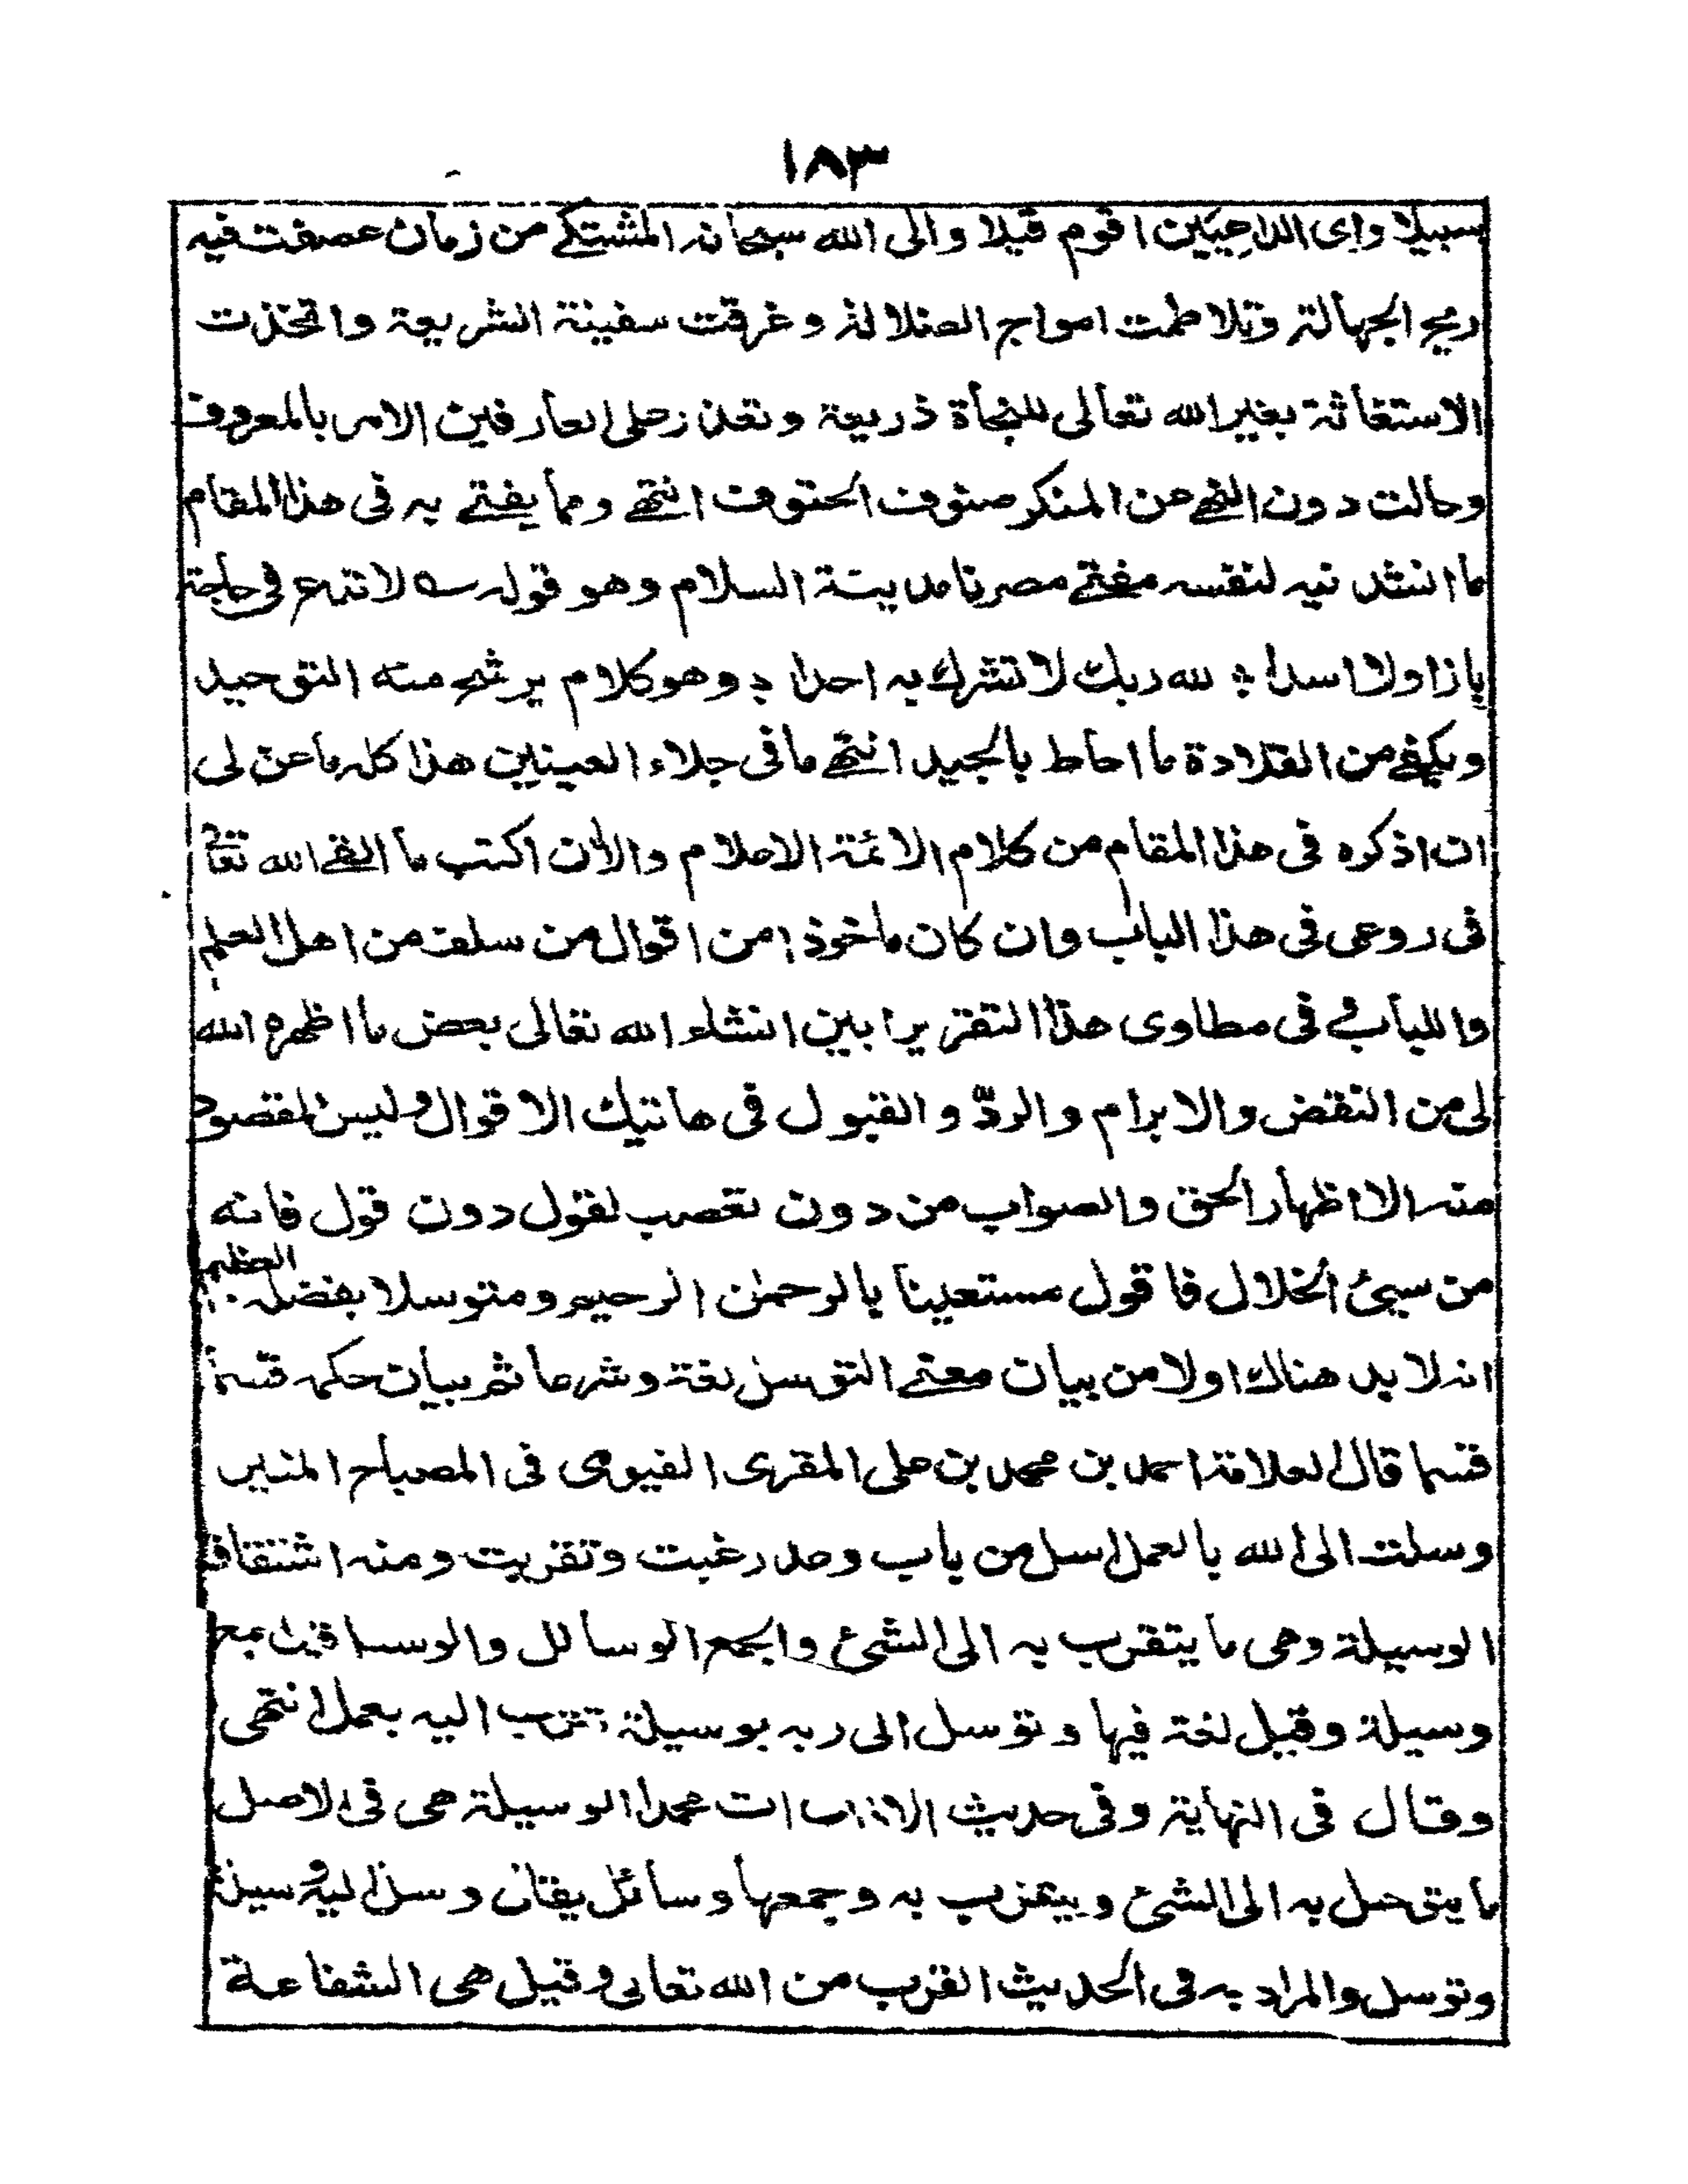 ١٨٣
سبيلا واى الداعيين اقوم قيلا والى الله سبحانه المشتكے من زمان عصفت فيه
ريح الجهالة وتلاطمت امواج الضلالة وغرقت سفينة الشريعة واتخذت
الاستغاثة بغير الله تعالى للنجاة ذريعة وتعذر على العارفين الامر بالمعروف
وحالت دون النهے عن المنكر صنوف الحتوف انتهے ومما يفتے به فى هذا المقام
ما انشدنيه لنفسه مفتے مصرنا مدينة السلام وهو قوله لا تدع فى حاجة
بازا ولا اسدا ؞ لله ربك لا تشرك به احدا ؞ وهو كلام يرشح منه التوحيد
ويكفے من القلادة ما احاط بالجيد انتهے ما فى جلاء العينين هذا كله ما عن لى
ان اذكره فى هذا المقام من كلام الائمة الاعلام والاٰن اكتب ما القے الله تعالٰے
فى روعى فى هذا الباب وان كان ماخوذا من اقوال من سلف من اهل العلم
واللباب فى مطاوى هذا التقرير ابين انشاء الله تعالى بعض ما اظهره الله
لى من النقض والابرام والردّ والقبول فى هاتيك الاقوال وليس المقصود
منه الا اظهار الحق والصواب من دون تعصب لقول دون قول فانه
من سيئ الخلال فاقول مستعينا بالرحمٰن الرحيم ومتوسلا بفضله العظيم
انه لا بد هناك اولا من بيان معنے التوسل لغة وشرعا ثم بيان حكمه قسما
قسما قال العلامة احمد بن محمد بن على المقرى الفيومى فى المصباح المنير
وسلت الى الله بالعمل اسل من باب وعد رغبت وتقربت ومنه اشتقاق
الوسيلة وهى ما يتقرب به الى الشئ والجمع الوسائل والوسيل قيل جمع
وسيلة وقيل لغة فيها وتوسل الى ربه بوسيلة تقرب اليه بعمل انتهى
وقال فى النهاية وفى حديث الاذان اٰت محمدا الوسيلة هى فى الاصل
ما يتوصل به الى الشئ ويتقرب به وجمعها وسائل يقال وسل اليه وسيلة
وتوسل والمراد به فى الحديث القرب من الله تعالى وقيل هى الشفاعة